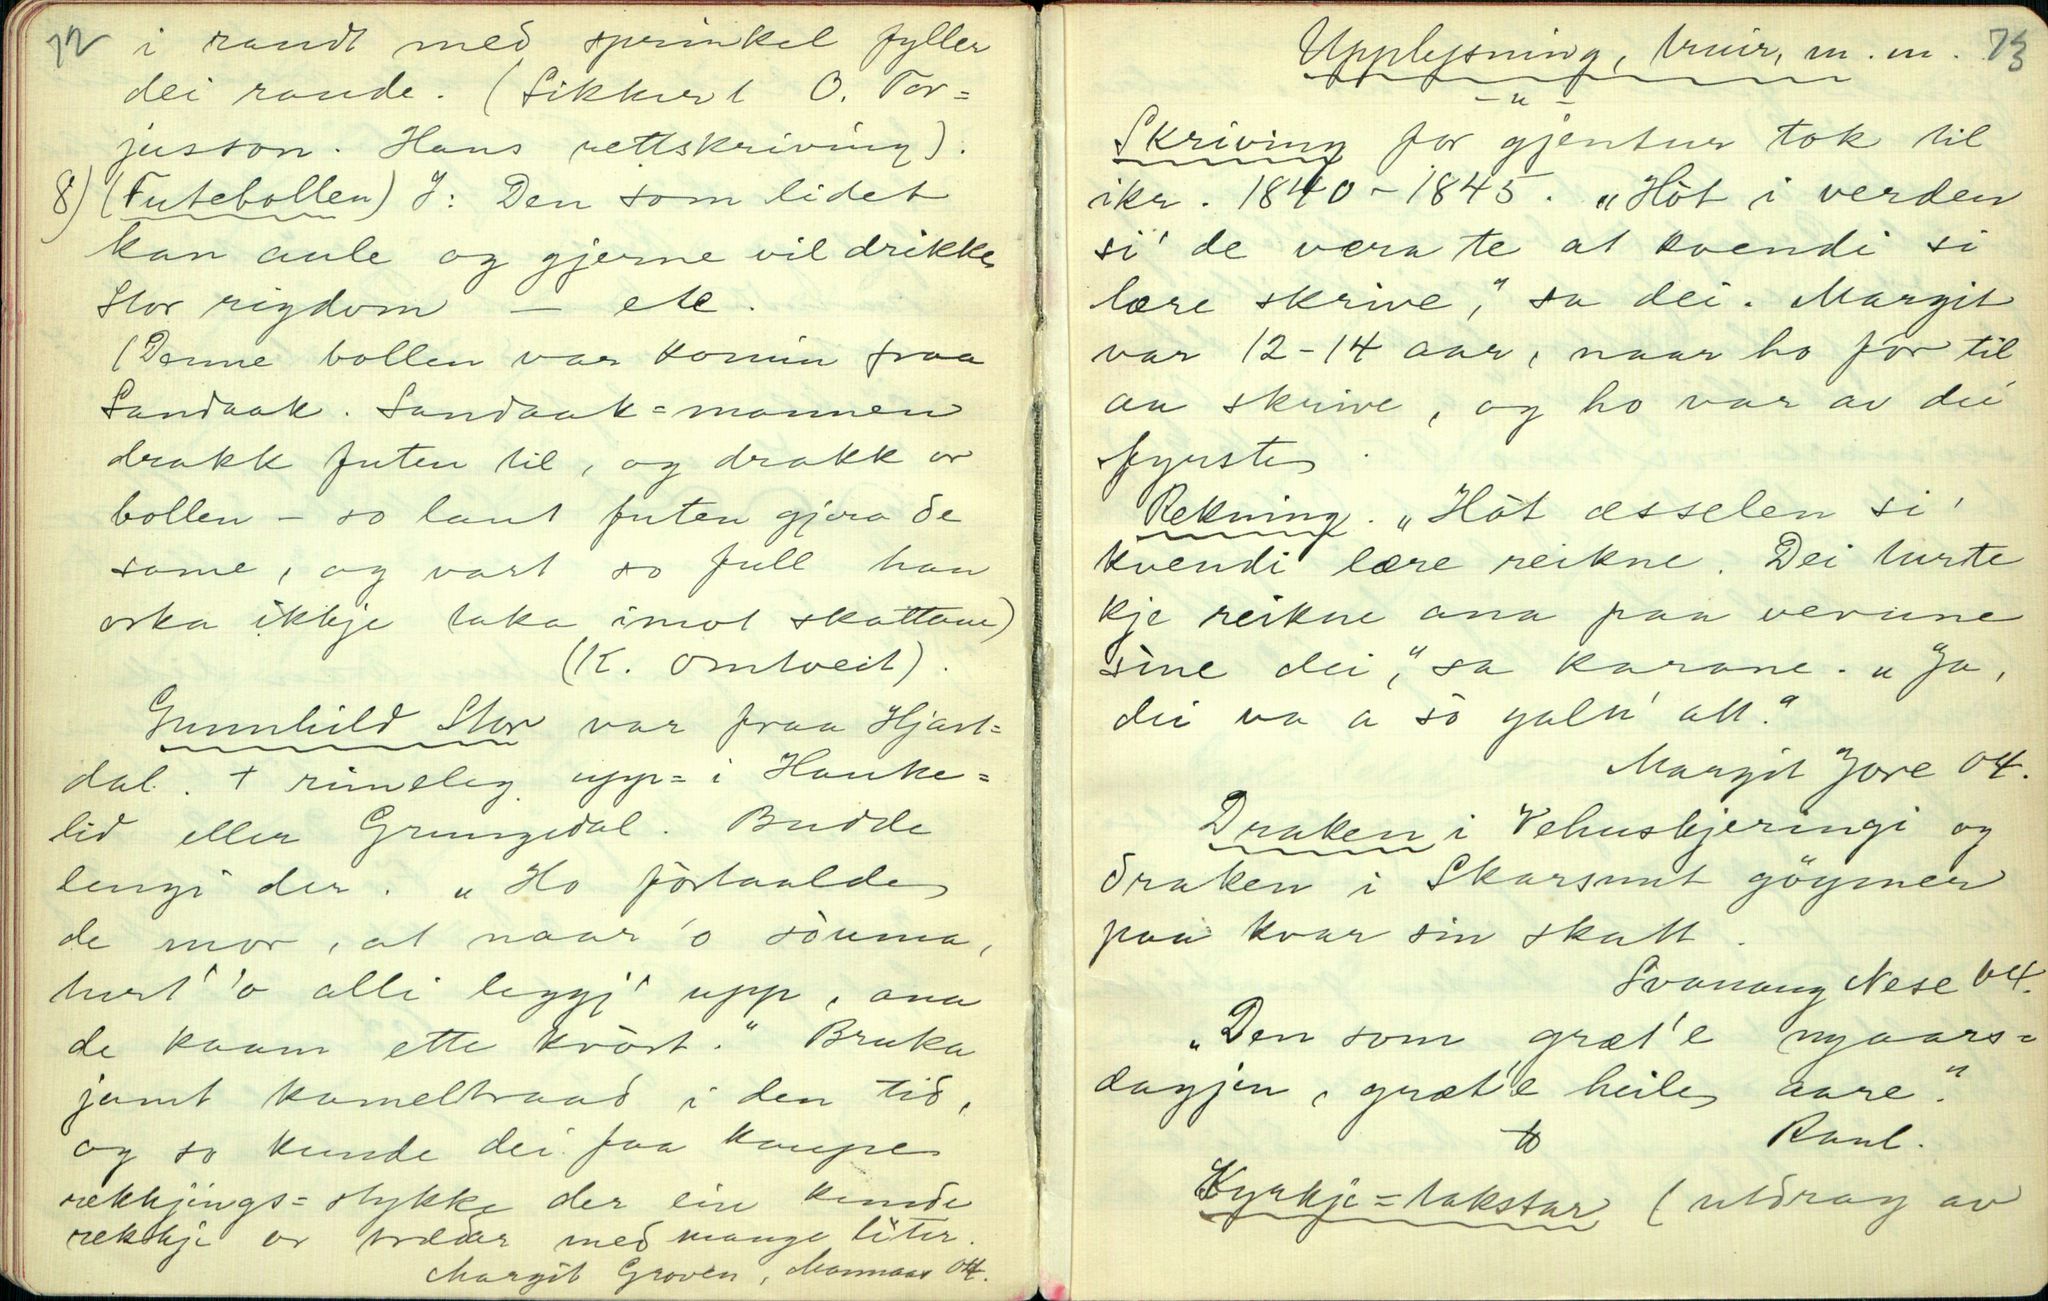 72
i raudt med sprinkel fyller
dei raude. (Sikkert O. Tor=
jusson. Hans rettskriving).
8) (Futebollen) J: Den som lidet
kan aule og gjerne vil drikke
Stor rigdom — etc.
(Denne bollen var komin fraa
Sandaak. Sandaak=mannen
drakk futen til, og drakk or
bollen – so laut futen gjera de
same, og vart so full han
orka ikkje taka imot skattane)
(K. Omtveit).
Gunnhild Stor var fraa Hjart=
dal. + rimeleg upp=i Hauke=
lid eller Grungedal. Budde
lengi der. „Ho förtaalde
de mor, at naar 'o sòuma,
turt' 'o alli leggj' upp, ana
de kaam ette kvört." Bruka
jamt kameltraad i den tid,
og so kunde dei faa kaupe
rekkjings=stykke der ein kunde
rekkje or trædar med mange liter.
Margit Groven, Mannaas 04.
73
Upplysning, truir, m.m.
– " –
Skriving for gjentur tok til
ikr. 1840–1845. „Hòt i verden
si' de vera te at kvendi si
lære skrive," sa dei. Margit
var 12–14 aar, naar ho for til
aa skrive, og ho var av dei
fyrste.
Rekning. „Hòt æsselen si'
kvendi lære reikne. Dei turte
kje reikne ana paa verune
sine dei," sa karane. „Ja,
dei va a so galn' att."
Margit Jore 04.
Draken i Vehuskjeringi og
draken i Skarsnut göymer
paa kvar sin skatt.
Svanaug Nese 04.
„Den som græt'e nyaars=
dagjen, græt'e heile aare."
Raul.
Kyrkje=takstar (utdrag av